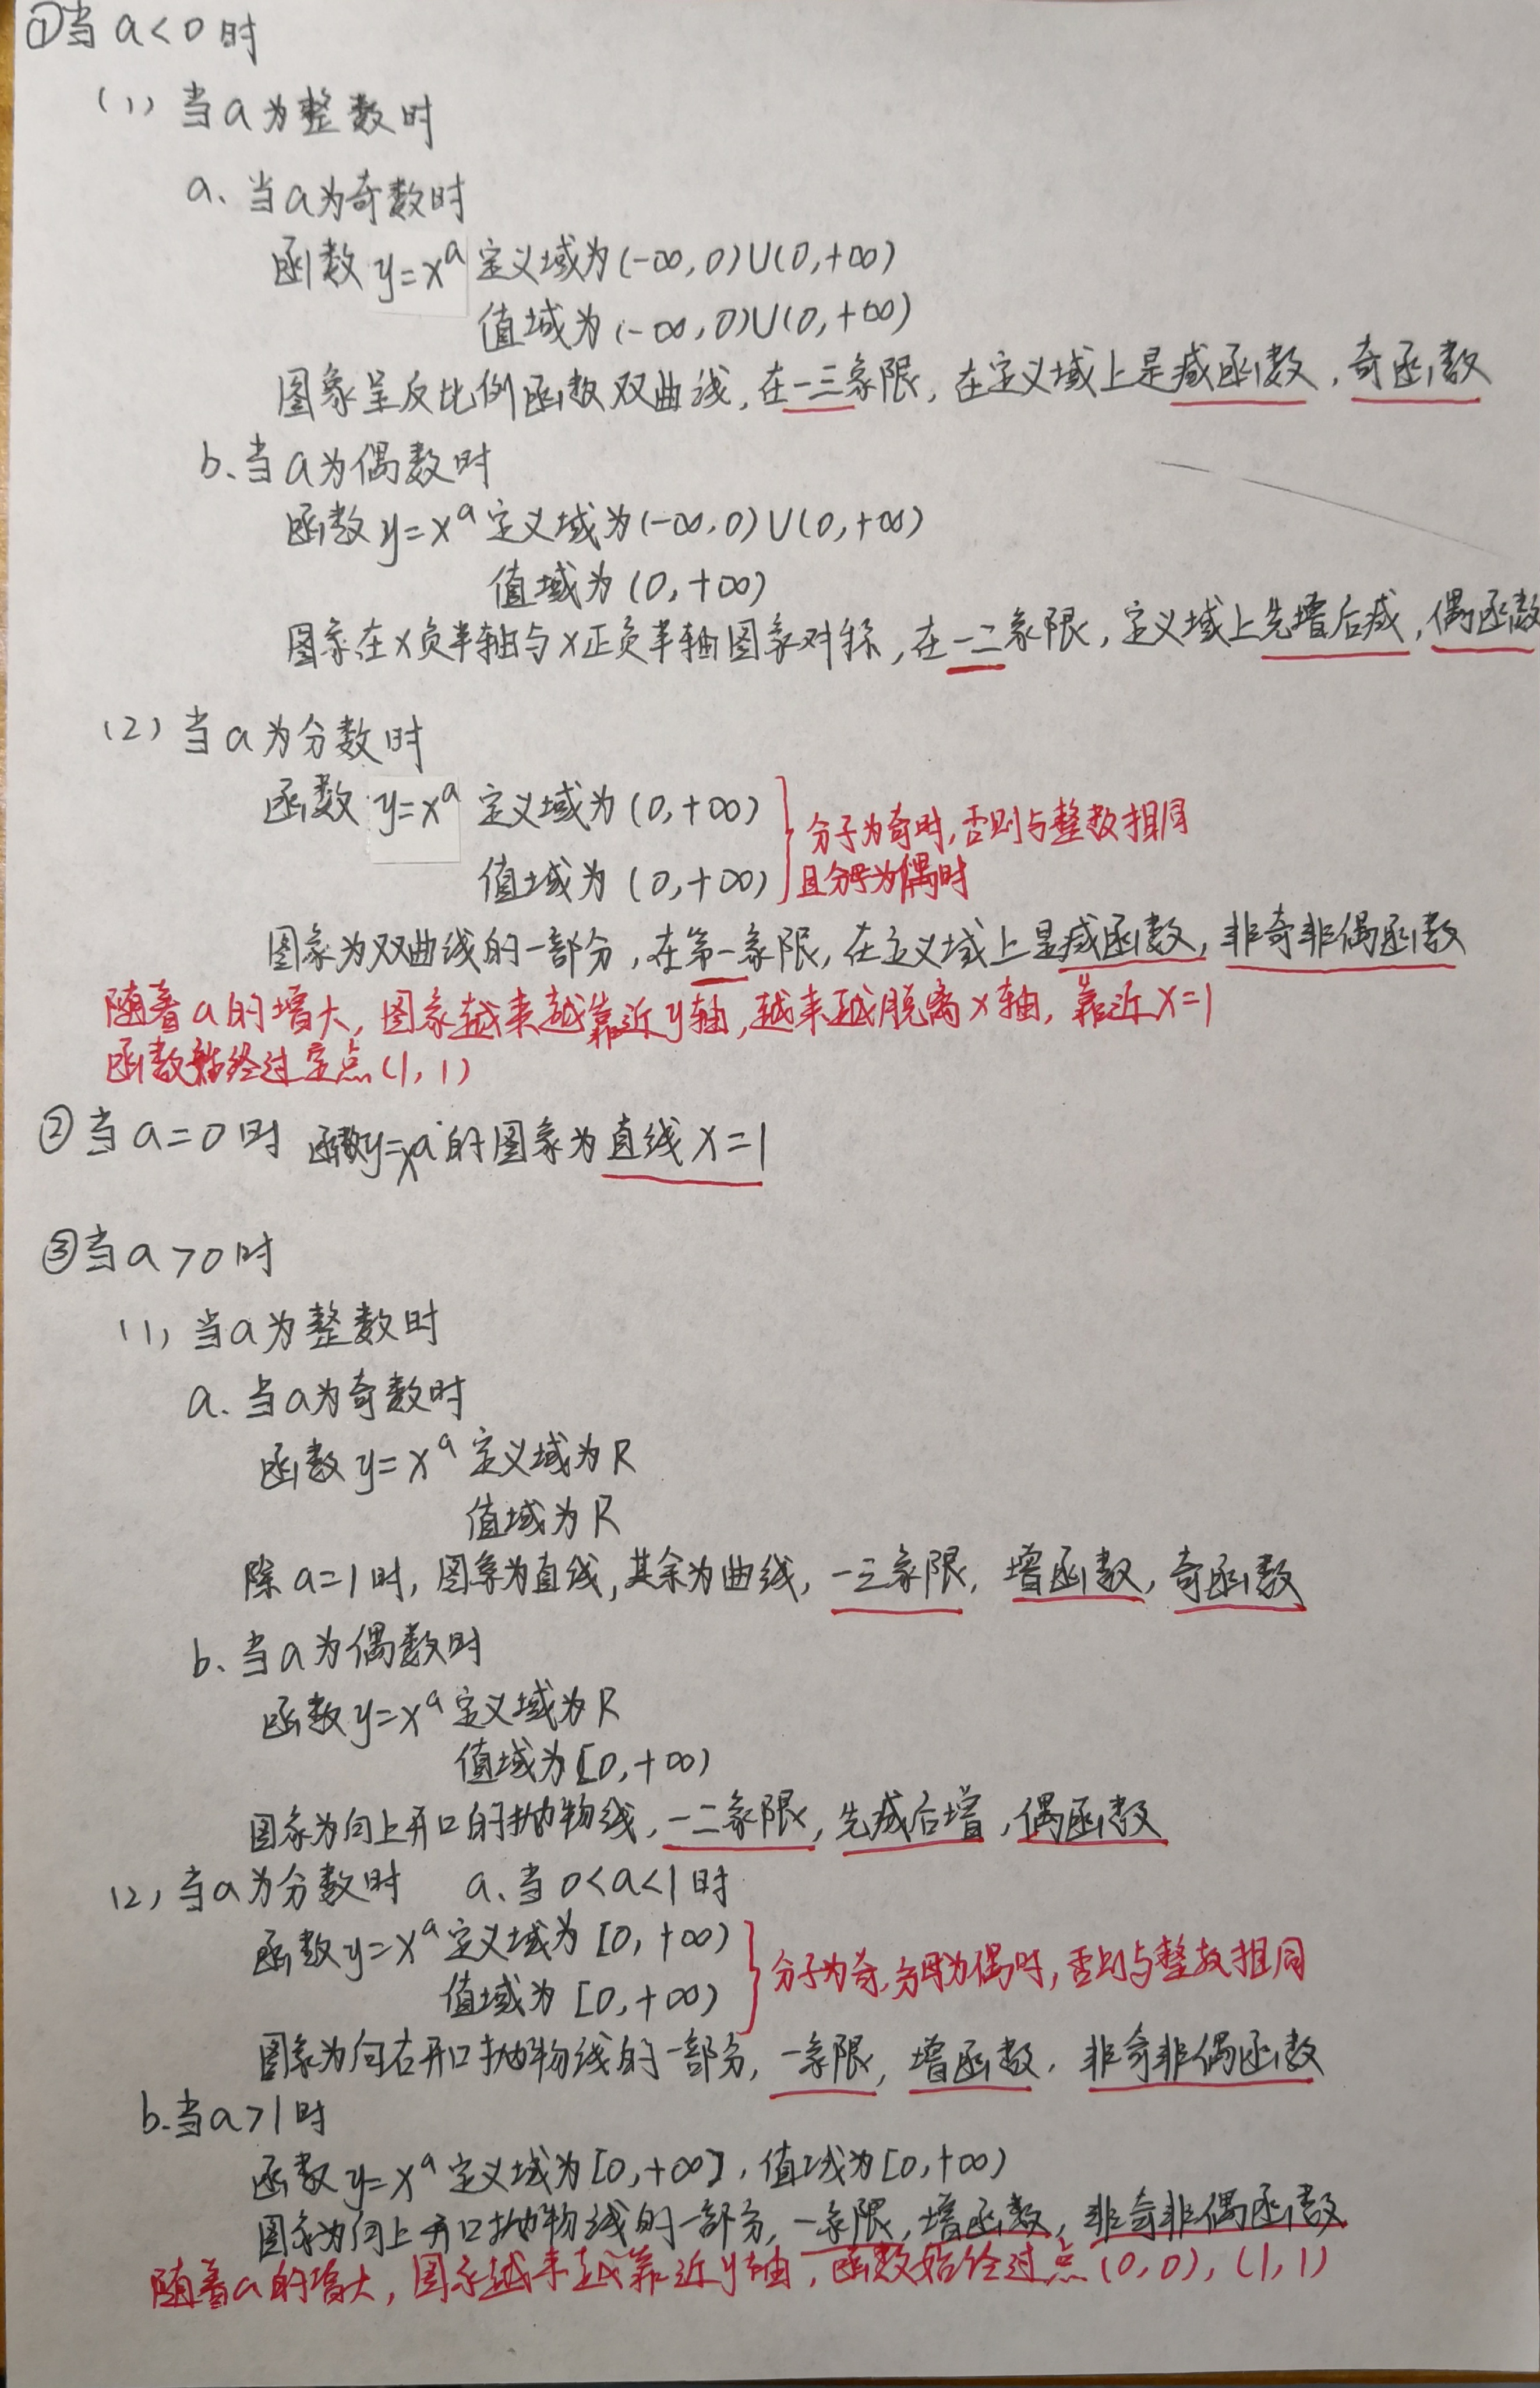 ①当a<0时
(1) 当a为整数时
a、当a为奇数时
函数y=xᵃ 定义域为(-∞,0)∪(0,+∞)
值域为(-∞,0)∪(0,+∞)
图象呈反比例函数双曲线,在一三象限,在定义域上是减函数,奇函数
b、当a为偶数时
函数y=xᵃ定义域为(-∞,0)∪(0,+∞)
值域为(0,+∞)
图象在x负半轴与x正负半轴图象对称,在一二象限,定义域上先增后减,偶函数
(2) 当a为分数时
函数y=xᵃ 定义域为(0,+∞)
分子为奇时,否则与整数相同
值域为(0,+∞)
且分母为偶时
图象为双曲线的一部分,在第一象限,在定义域上是减函数,非奇非偶函数
随着a的增大,图象越来越靠近y轴,越来越脱离x轴,靠近x=1
函数始终过定点(1,1)
②当a=0时 函数y=xᵃ的图象为直线x=1
③当a>0时
(1) 当a为整数时
a、当a为奇数时
函数y=xᵃ定义域为R
值域为R
除a=1时,图象为直线,其余为曲线,一三象限,增函数,奇函数
b、当a为偶数时
函数y=xᵃ定义域为R
值域为[0,+∞)
图象为向上开口的抛物线,一二象限,先减后增,偶函数
(2) 当a为分数时 a、当0<a<1时
函数y=xᵃ定义域为[0,+∞)
分子为奇,分母为偶时,否则与整数相同
值域为[0,+∞)
图象为向右开口抛物线的一部分,一象限,增函数,非奇非偶函数
b、当a>1时
函数y=xᵃ定义域为[0,+∞),值域为[0,+∞)
图象为向上开口抛物线的一部分,一象限,增函数,非奇非偶函数
随着a的增大,图象越来越靠近y轴,函数始终过点(0,0),(1,1)